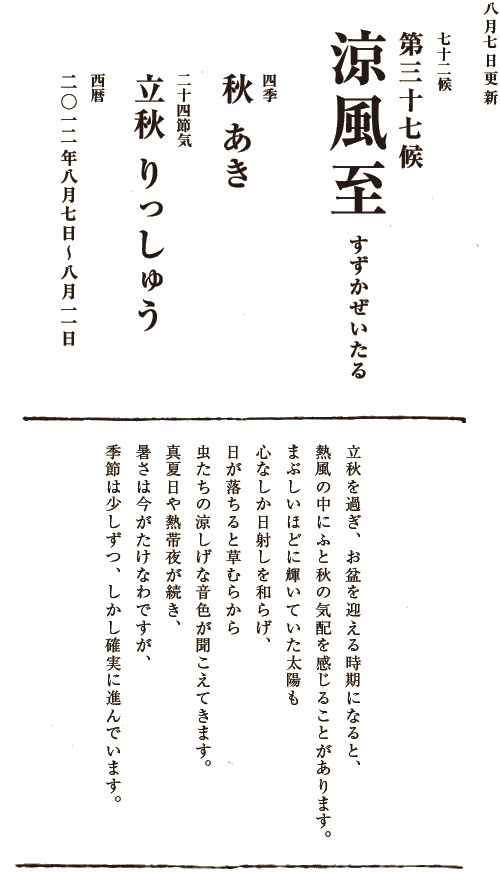 八月七日更新
七十二候
第三十七候
涼風至 すずかぜいたる
四季
秋 あき
二十四節気
立秋 りっしゅう
西暦
二〇一二年八月七日~八月一一日
立秋を過ぎ、お盆を迎える時期になると、
熱風の中にふと秋の気配を感じることがあります。
まぶしいほどに輝いていた太陽も
心なしか日射しを和らげ、
日が落ちると草むらから
虫たちの涼しげな音色が聞こえてきます。
真夏日や熱帯夜が続き、
暑さは今がたけなわですが、
季節は少しずつ、しかし確実に進んでいます。